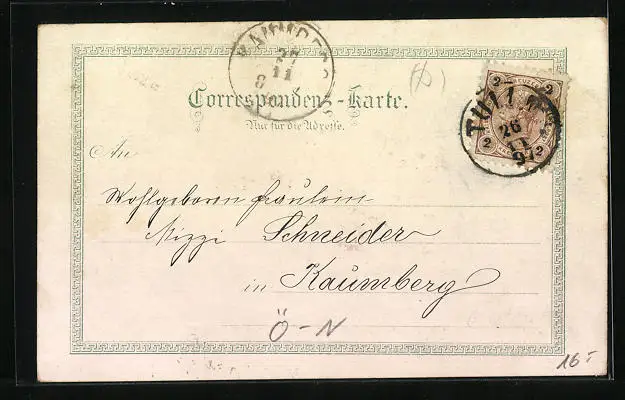 27
11
Correspondenz-Karte.
Nur für die Adresse.
2 2
2 2
TULLN
26
11
97
An
Wohlgeboren Fräulein
Mizzi Schneider
in Kaumberg
Ö-N
16-